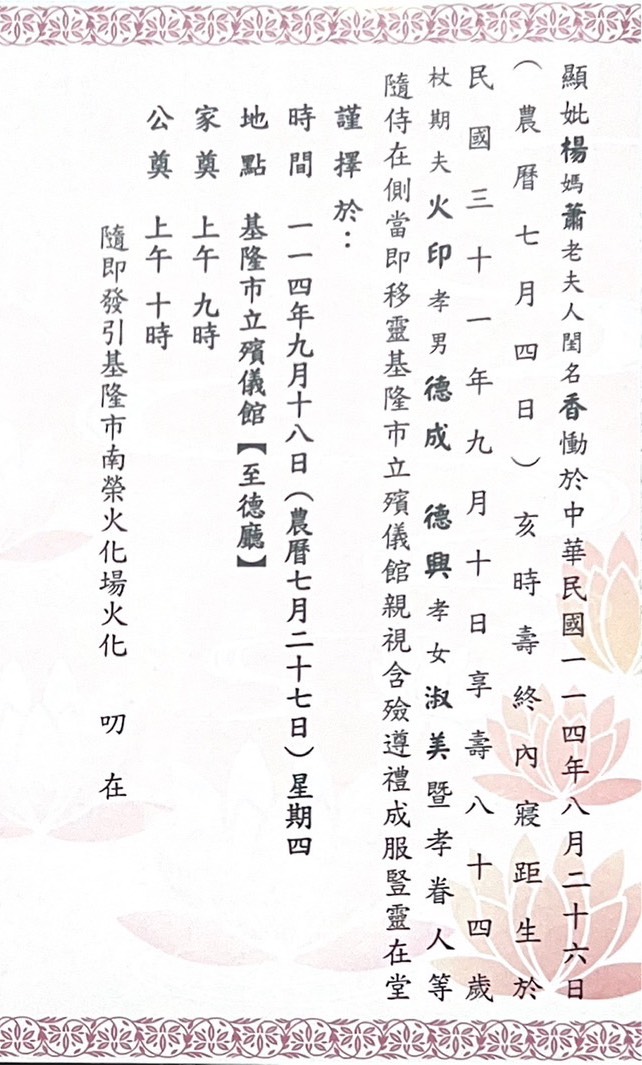 顯妣楊媽蕭老夫人閨名香慟於中華民國一一四年八月二十六日
（農曆七月四日）亥時壽終內寢距生於
民國三十一年九月十日享壽八十四歲
杖期夫火印孝男德成　德興孝女淑美暨孝眷人等
隨侍在側當即移靈基隆市立殯儀館親視含殮遵禮成服豎靈在堂
謹擇於：
時間　一一四年九月十八日（農曆七月二十七日）星期四
地點　基隆市立殯儀館【至德廳】
家奠　上午　九時
公奠　上午　十時
隨即發引基隆市南榮火化場火化　叨　在